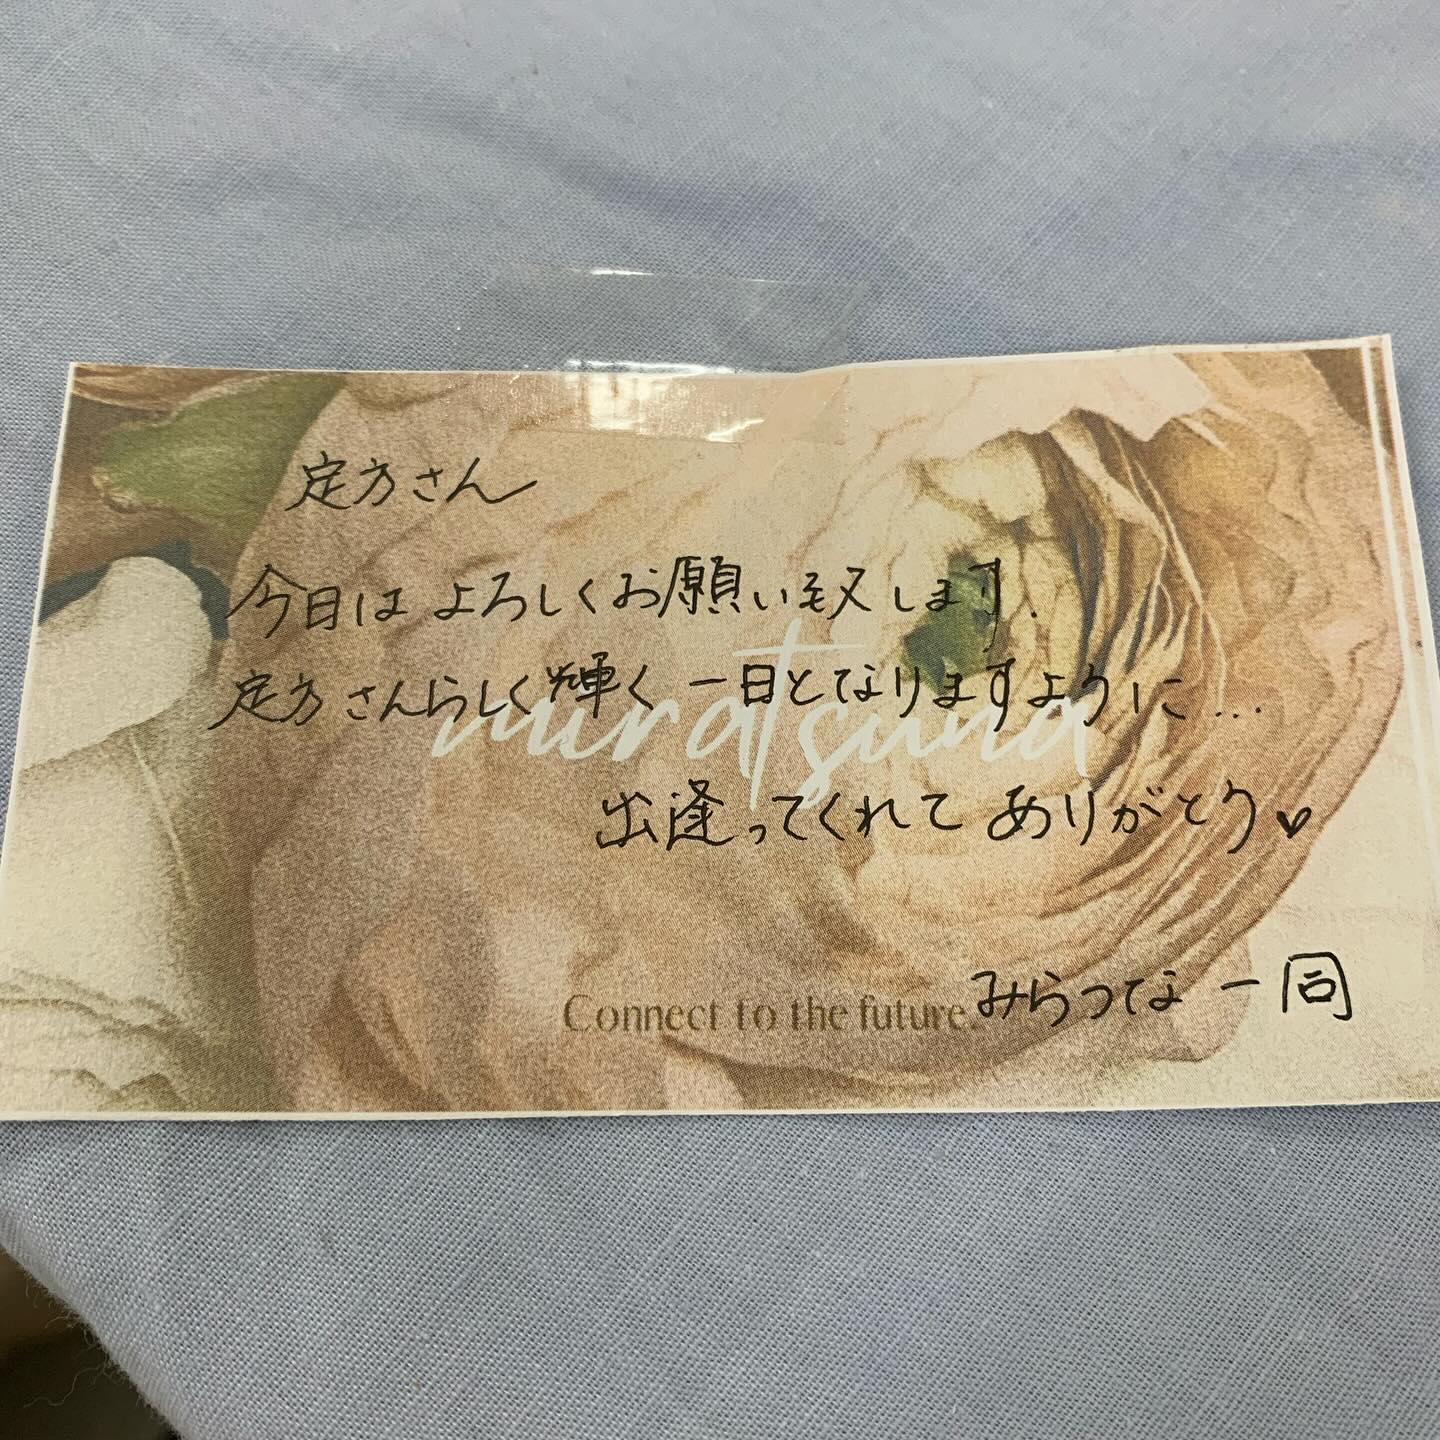 定方さん
今日は よろしくお願い致します.
定方さんらしく輝く 一日となりますように…
miratsuna
出逢ってくれて ありがとう♥
Connect to the future.
みらつな 一同